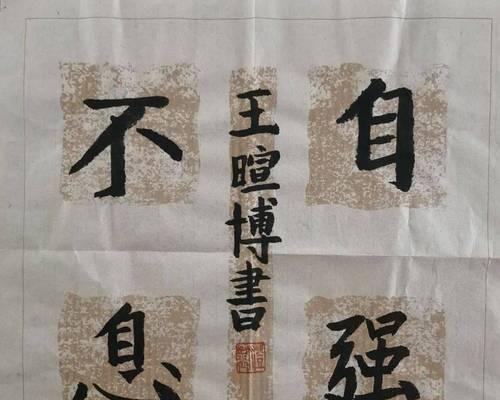 自强
不息
王暄博書